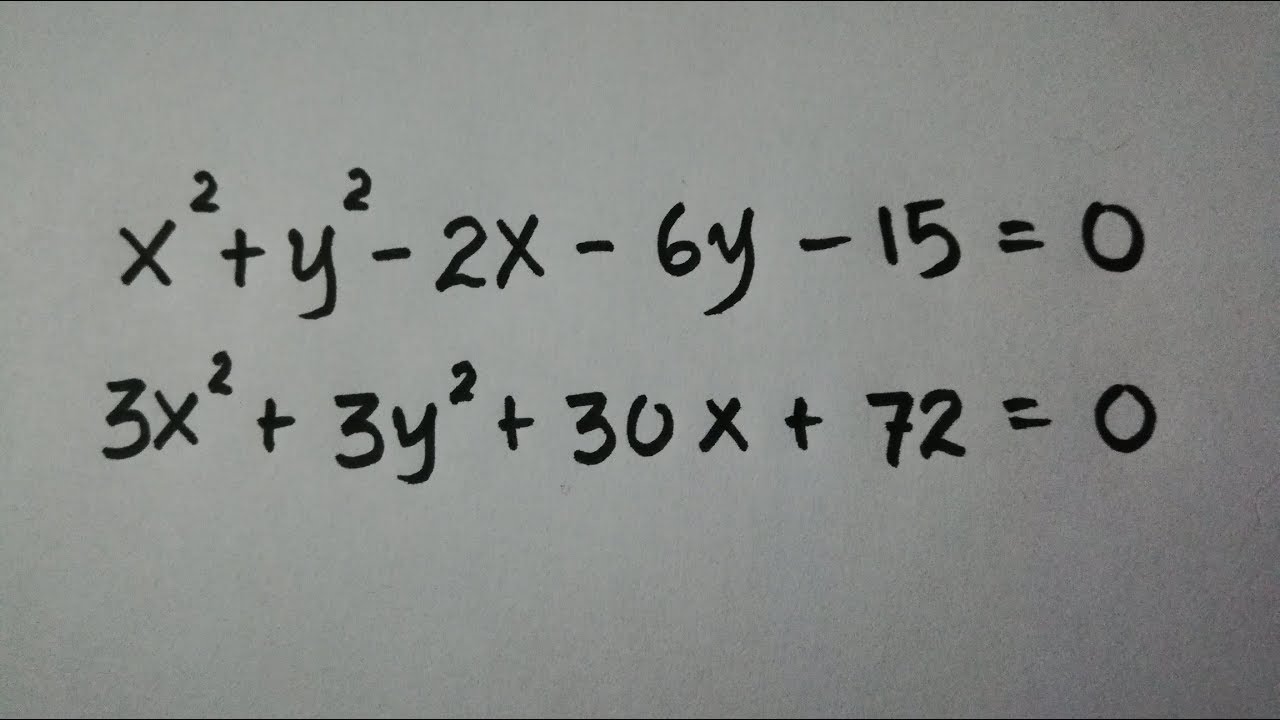 x² + y² - 2x - 6y - 15 = 0
3x² + 3y² + 30x + 72 = 0